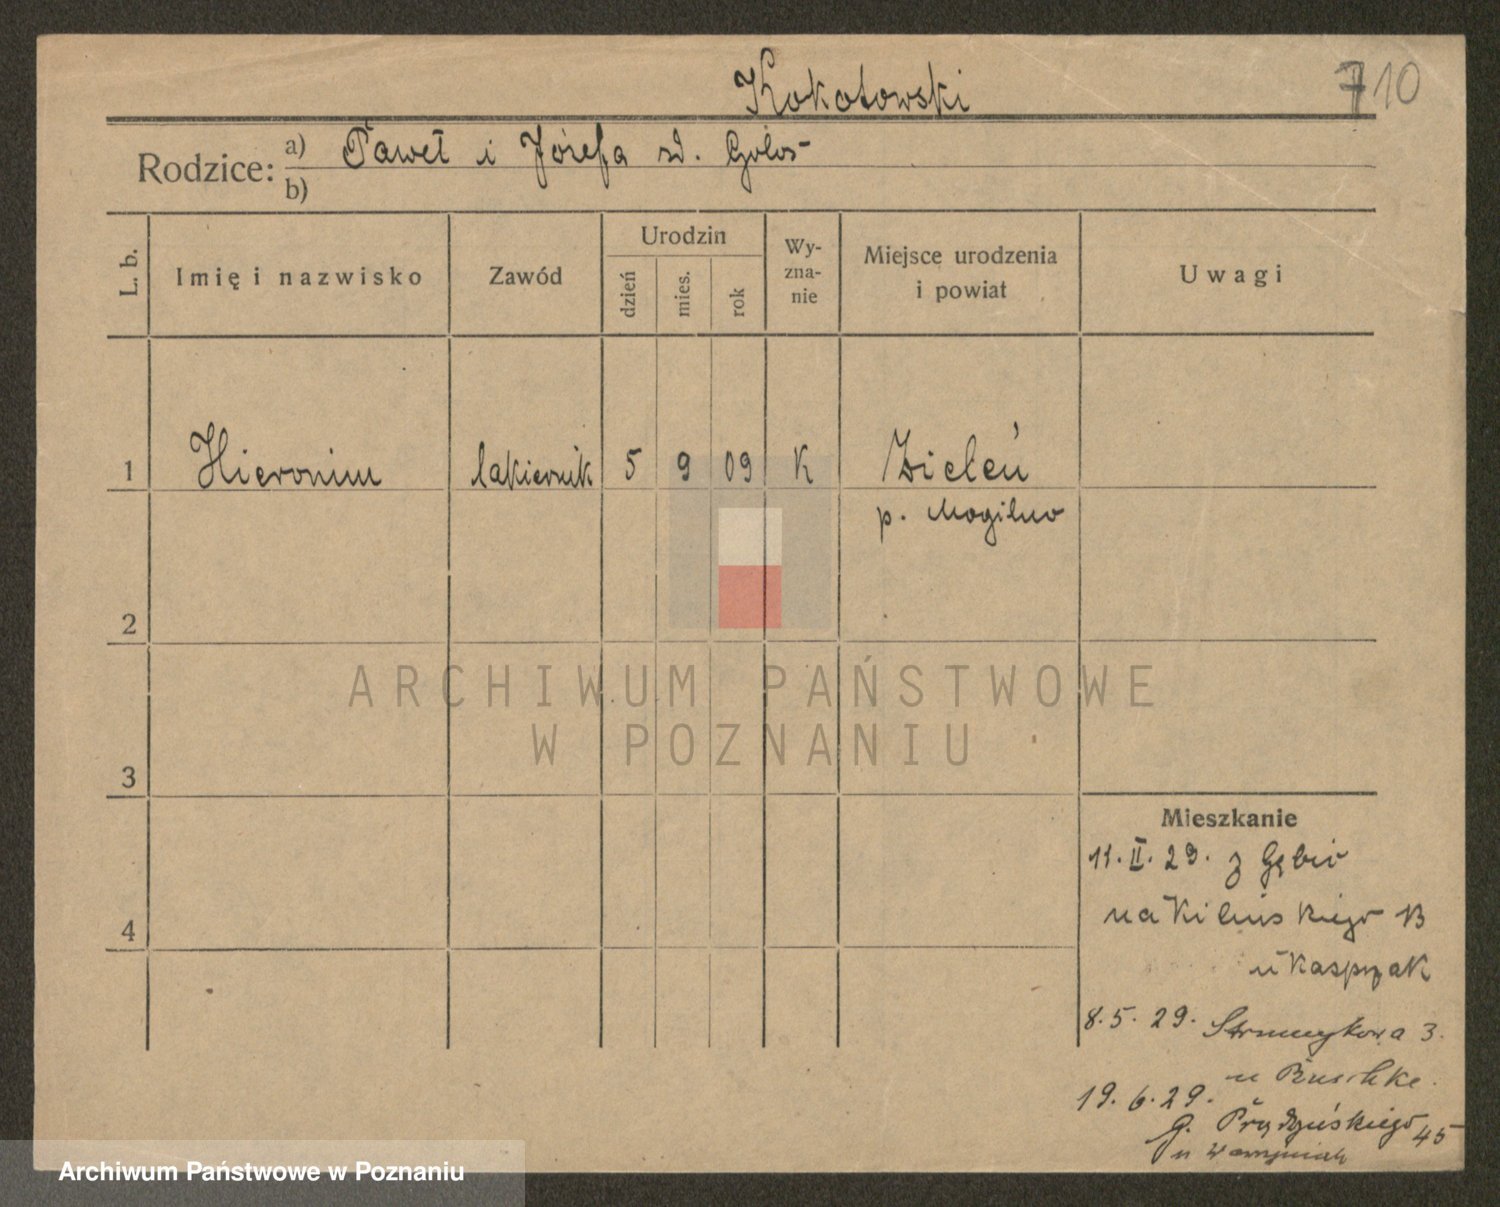 Kokotowski
710
Rodzice: a) Paweł i Józefa zd. Gołos
b)
L. b.
Imię i nazwisko
Zawód
Urodzin
dzień
mies.
rok
Wy-
zna-
nie
Miejsce urodzenia
i powiat
Uwagi
1 Hieronim lakiernik 5 9 09 K Zieleń
p. Mogilno
2
ARCHIWUM PAŃSTWOWE
W POZNANIU
3
Mieszkanie
11. II. 29. z Gębic
na Kilińskiego 13
4
u Kasprzak
8.5.29. Strumykowa 3.
u Buschke.
19.6.29.
G. Prądzyńskiego 45
u
Archiwum Państwowe w Poznaniu